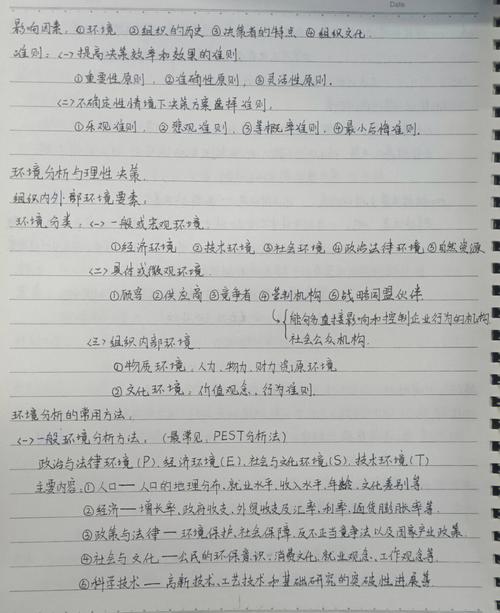 Date
影响因素：①环境 ②组织的历史 ③决策者的特点 ④组织文化.
准则：(一)提高决策效率和效果的准则.
①重要性原则，②准确性原则，③灵活性原则.
(二)不确定性情境下决策方案选择准则.
①乐观准则，②悲观准则，③等概率准则，④最小后悔准则.
环境分析与理性决策.
组织内外部环境要素：
环境分类：(一)一般或宏观环境.
①经济环境 ②技术环境 ③社会环境 ④政治法律环境 ⑤自然资源
(二)具体或微观环境.
①顾客 ②供应商 ③竞争者 ④管制机构 ⑤战略同盟伙伴.
能够直接影响和控制企业行为的机构
社会公众机构.
(三)组织内部环境
①物质环境，人力、物力、财力资源环境
②文化环境：价值观念、行为准则.
环境分析的常用方法：
(一)一般环境分析方法，(最常见，PEST分析法)
政治与法律环境(P)、经济环境(E)、社会与文化环境(S)、技术环境(T)
主要内容：①人口——人口的地理分布、就业水平、收入水平、年龄、文化差别等
②经济——增长率、政府收支、外贸收支及汇率、利率、通货膨胀率等.
③政策与法律——环境保护、社会保障、反不正当竞争法以及国家产业政策.
④社会与文化——公民的环保意识、消费文化、就业观念、工作观念等.
⑤科学技术——高新技术、工艺技术和基础研究的突破性进展等.